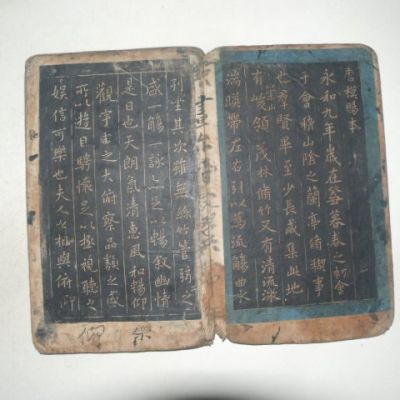 唐模賜本
永和九年歲在癸丑暮春之初會
于會稽山陰之蘭亭脩禊事
也群賢畢至少長咸集此地
有崇山峻領茂林脩竹又有清流激
湍暎帶左右引以為流觴曲水
列坐其次雖無絲竹管弦之
盛一觴一詠亦足以暢敘幽情
是日也天朗氣清惠風和暢仰
觀宇宙之大俯察品類之盛
所以遊目騁懷足以極視聽之
娛信可樂也夫人之相與俯仰